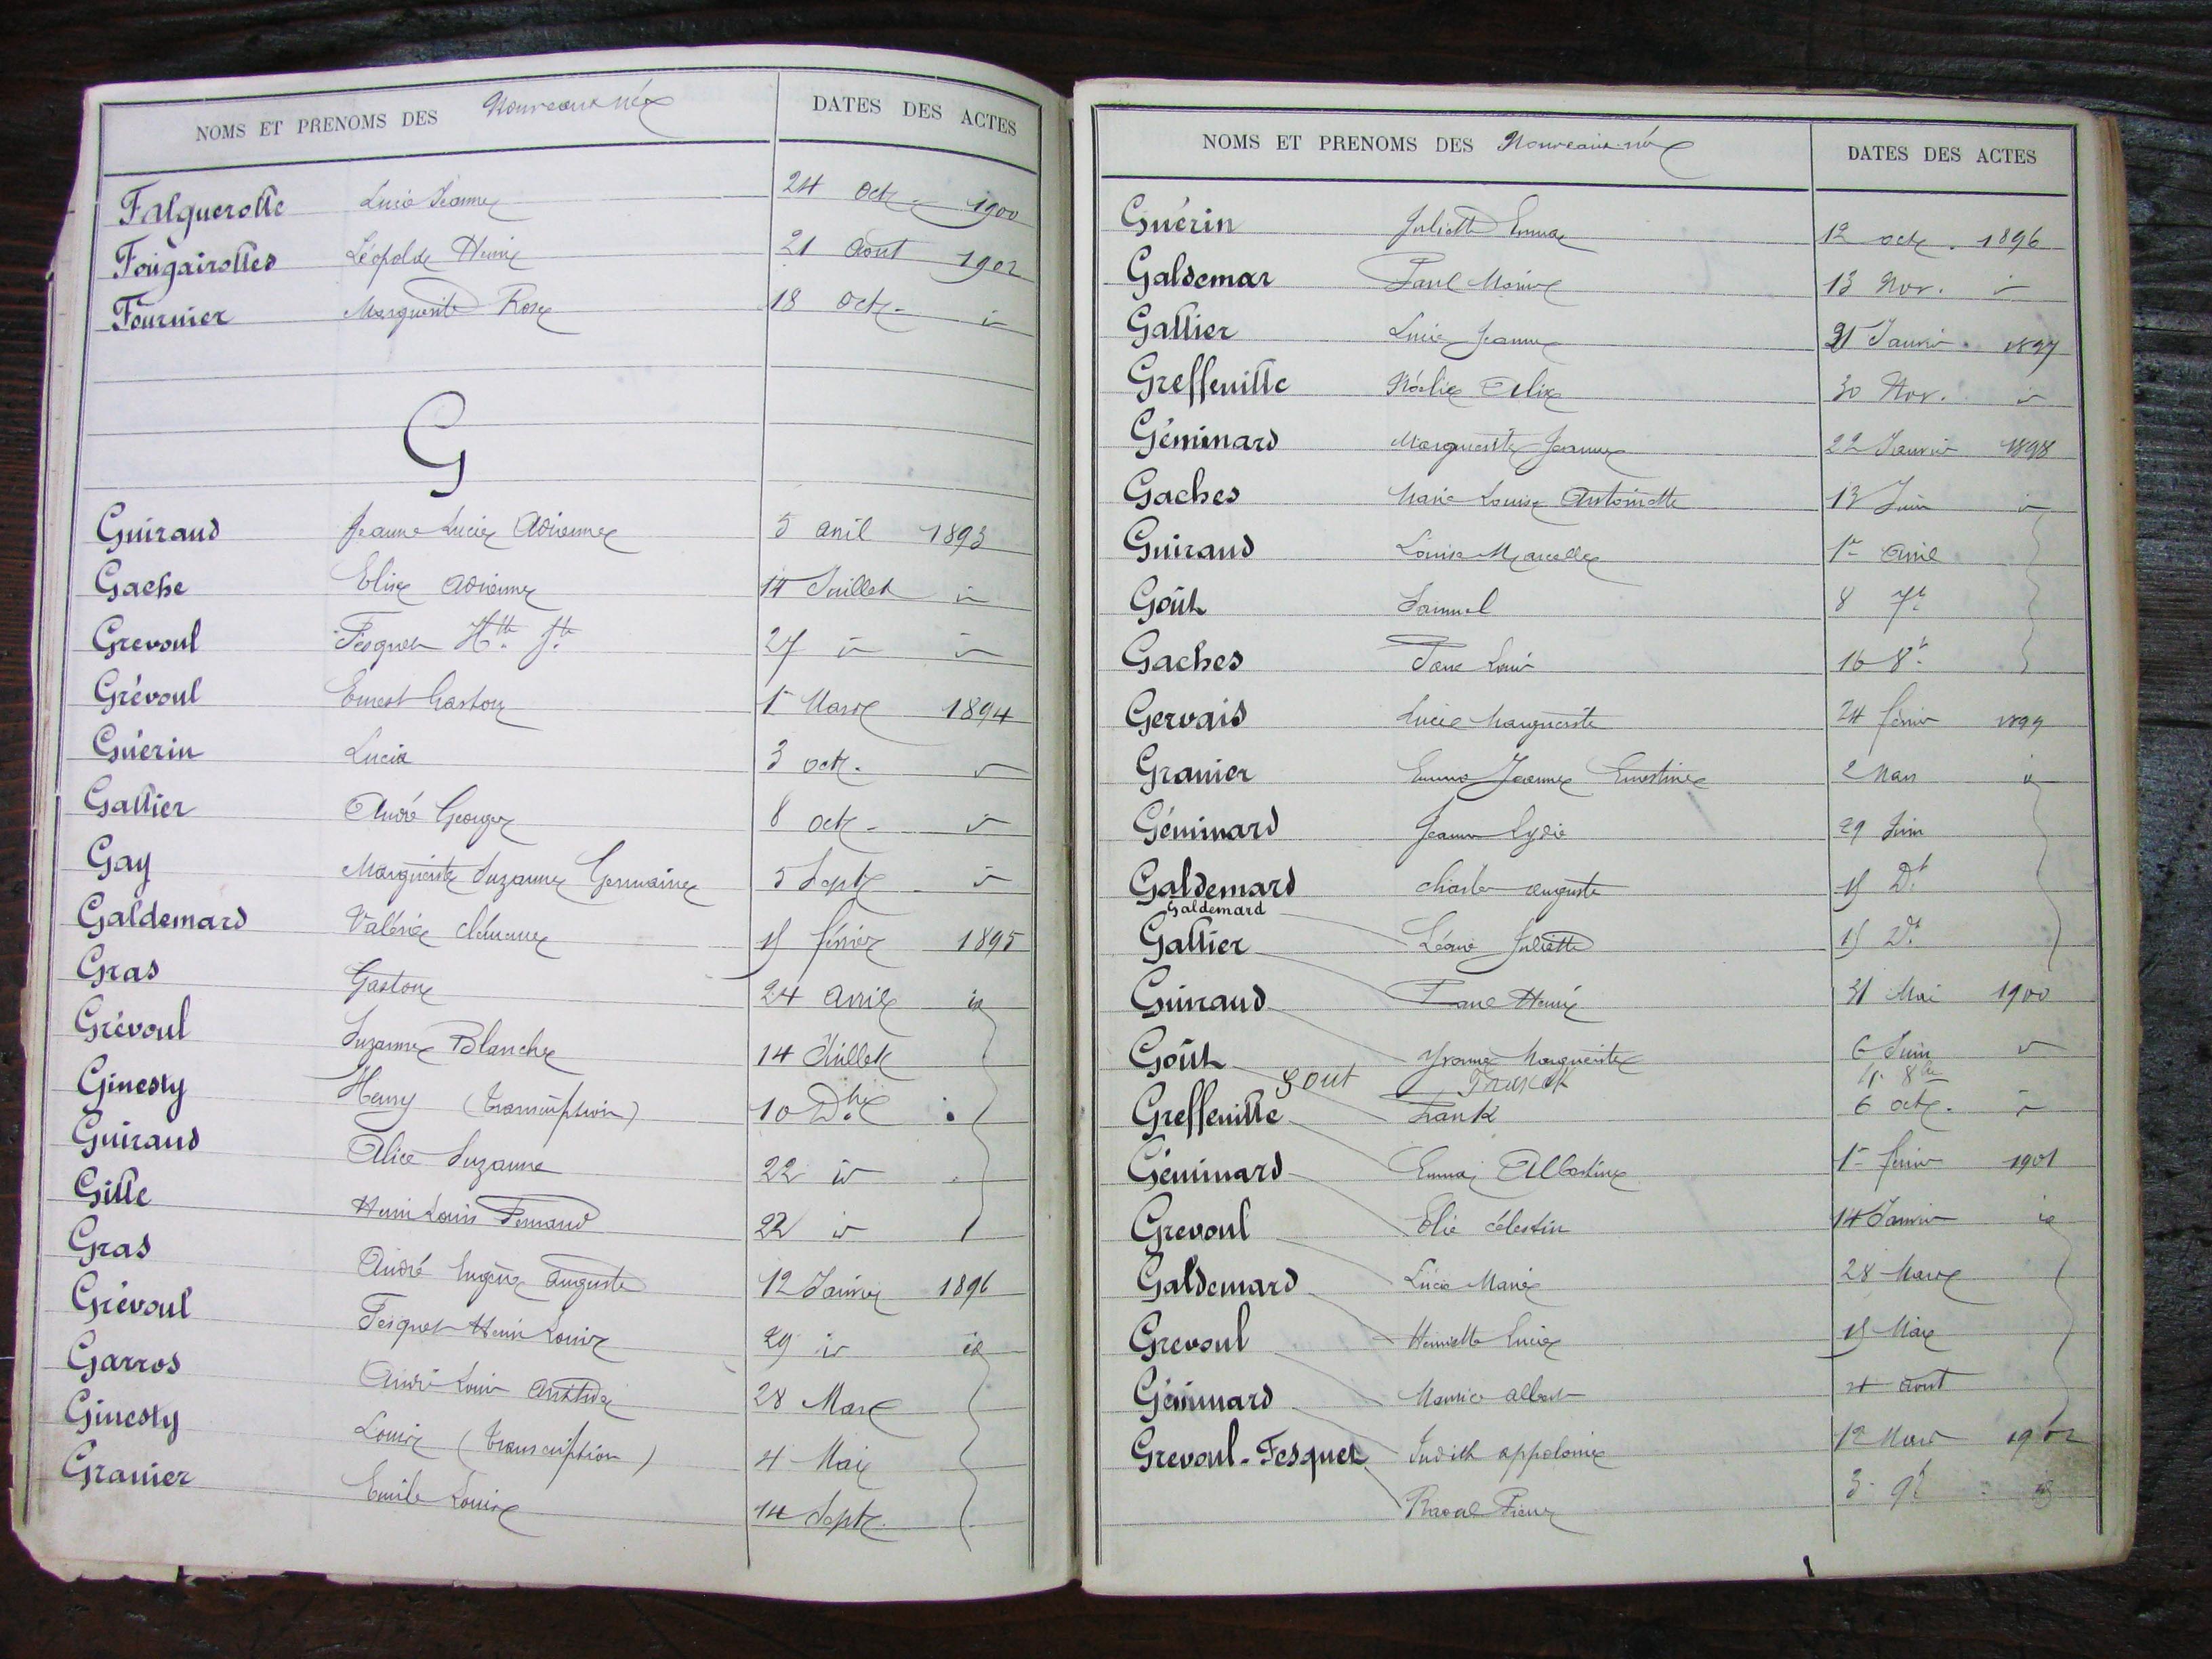 NOMS ET PRENOMS DES Nouveaux nés DATES DES ACTES
Falguerolle Lucie Jeanne 24 Octe 1900
Fougairolles Léopold Henri 21 Aout 1902
Fournier Marguerite Rose 18 Octe id
G
Guiraud Jeanne Lucie Adrienne 5 avril 1893
Gache Elise Adrienne 14 Juillet id
Grevoul Fesquet Htte Jte 27 id id
Grévoul Ernest Gaston 1er Mars 1894
Guérin Lucie 3 octe id
Gallier André Georges 8 octe id
Gay Marguerite Suzanne Germaine 5 Septe id
Galdemard Valérie Clémence 15 février 1895
Gras Gaston 24 Avril id
Grévoul Suzanne Blanche 14 Juillet
Ginesty Henry (transcription) 10 Dbre
Guiraud Alice Suzanne 22 id
Gille Henri Louis Fernand 22 id
Gras André Eugène Auguste 12 Janvier 1896
Grévoul Fesquet Henri Louis 29 id id
Garros André Louis Aristide 28 Mars
Ginesty Louis (transcription) 4 Mai
Granier Emile Louis 14 Septe
NOMS ET PRENOMS DES Nouveaux-nés DATES DES ACTES
Guérin Juliette Emma 12 octe 1896
Galdemar Paul Marius 13 Nov. id
Gallier Lucie Jeanne 21 Janvier 1897
Greffeuille Noélie Elix 30 Nov. id
Géminard Marguerite Jeanne 22 Janvier 1898
Gaches Marie Louise Antoinette 13 Juin id
Guiraud Louise Marcelle 1er Avril
Goût Samuel 8 7e
Gaches Paul Louis 16 8e
Gervais Lucie Marguerite 24 février 1899
Granier Emma Jeanne Ernestine 2 Mars id
Géminard Jeanne Lydie 29 Juin
Galdemard Charles Auguste 15 Dt
Galdemard
Gallier Léonie Juliette 15 Dt
Guiraud Paul Henri 31 Mai 1900
Goût Yvonne Marguerite 6 Juin id
gout Franck
Greffeuille Frank 6 octe. id
Géminard Emma Albertine 1er février 1901
Grevoul Elie Célestin 14 Janvier id
Galdemard Lucie Marie 28 Mars
Grevoul Henriette Lucie 15 Mai
Géminard Maurice Albert 4 Aout
Grevoul-Fesquet Judith Appolonie 12 Mars 1902
Raoul Pierre 3 9e id